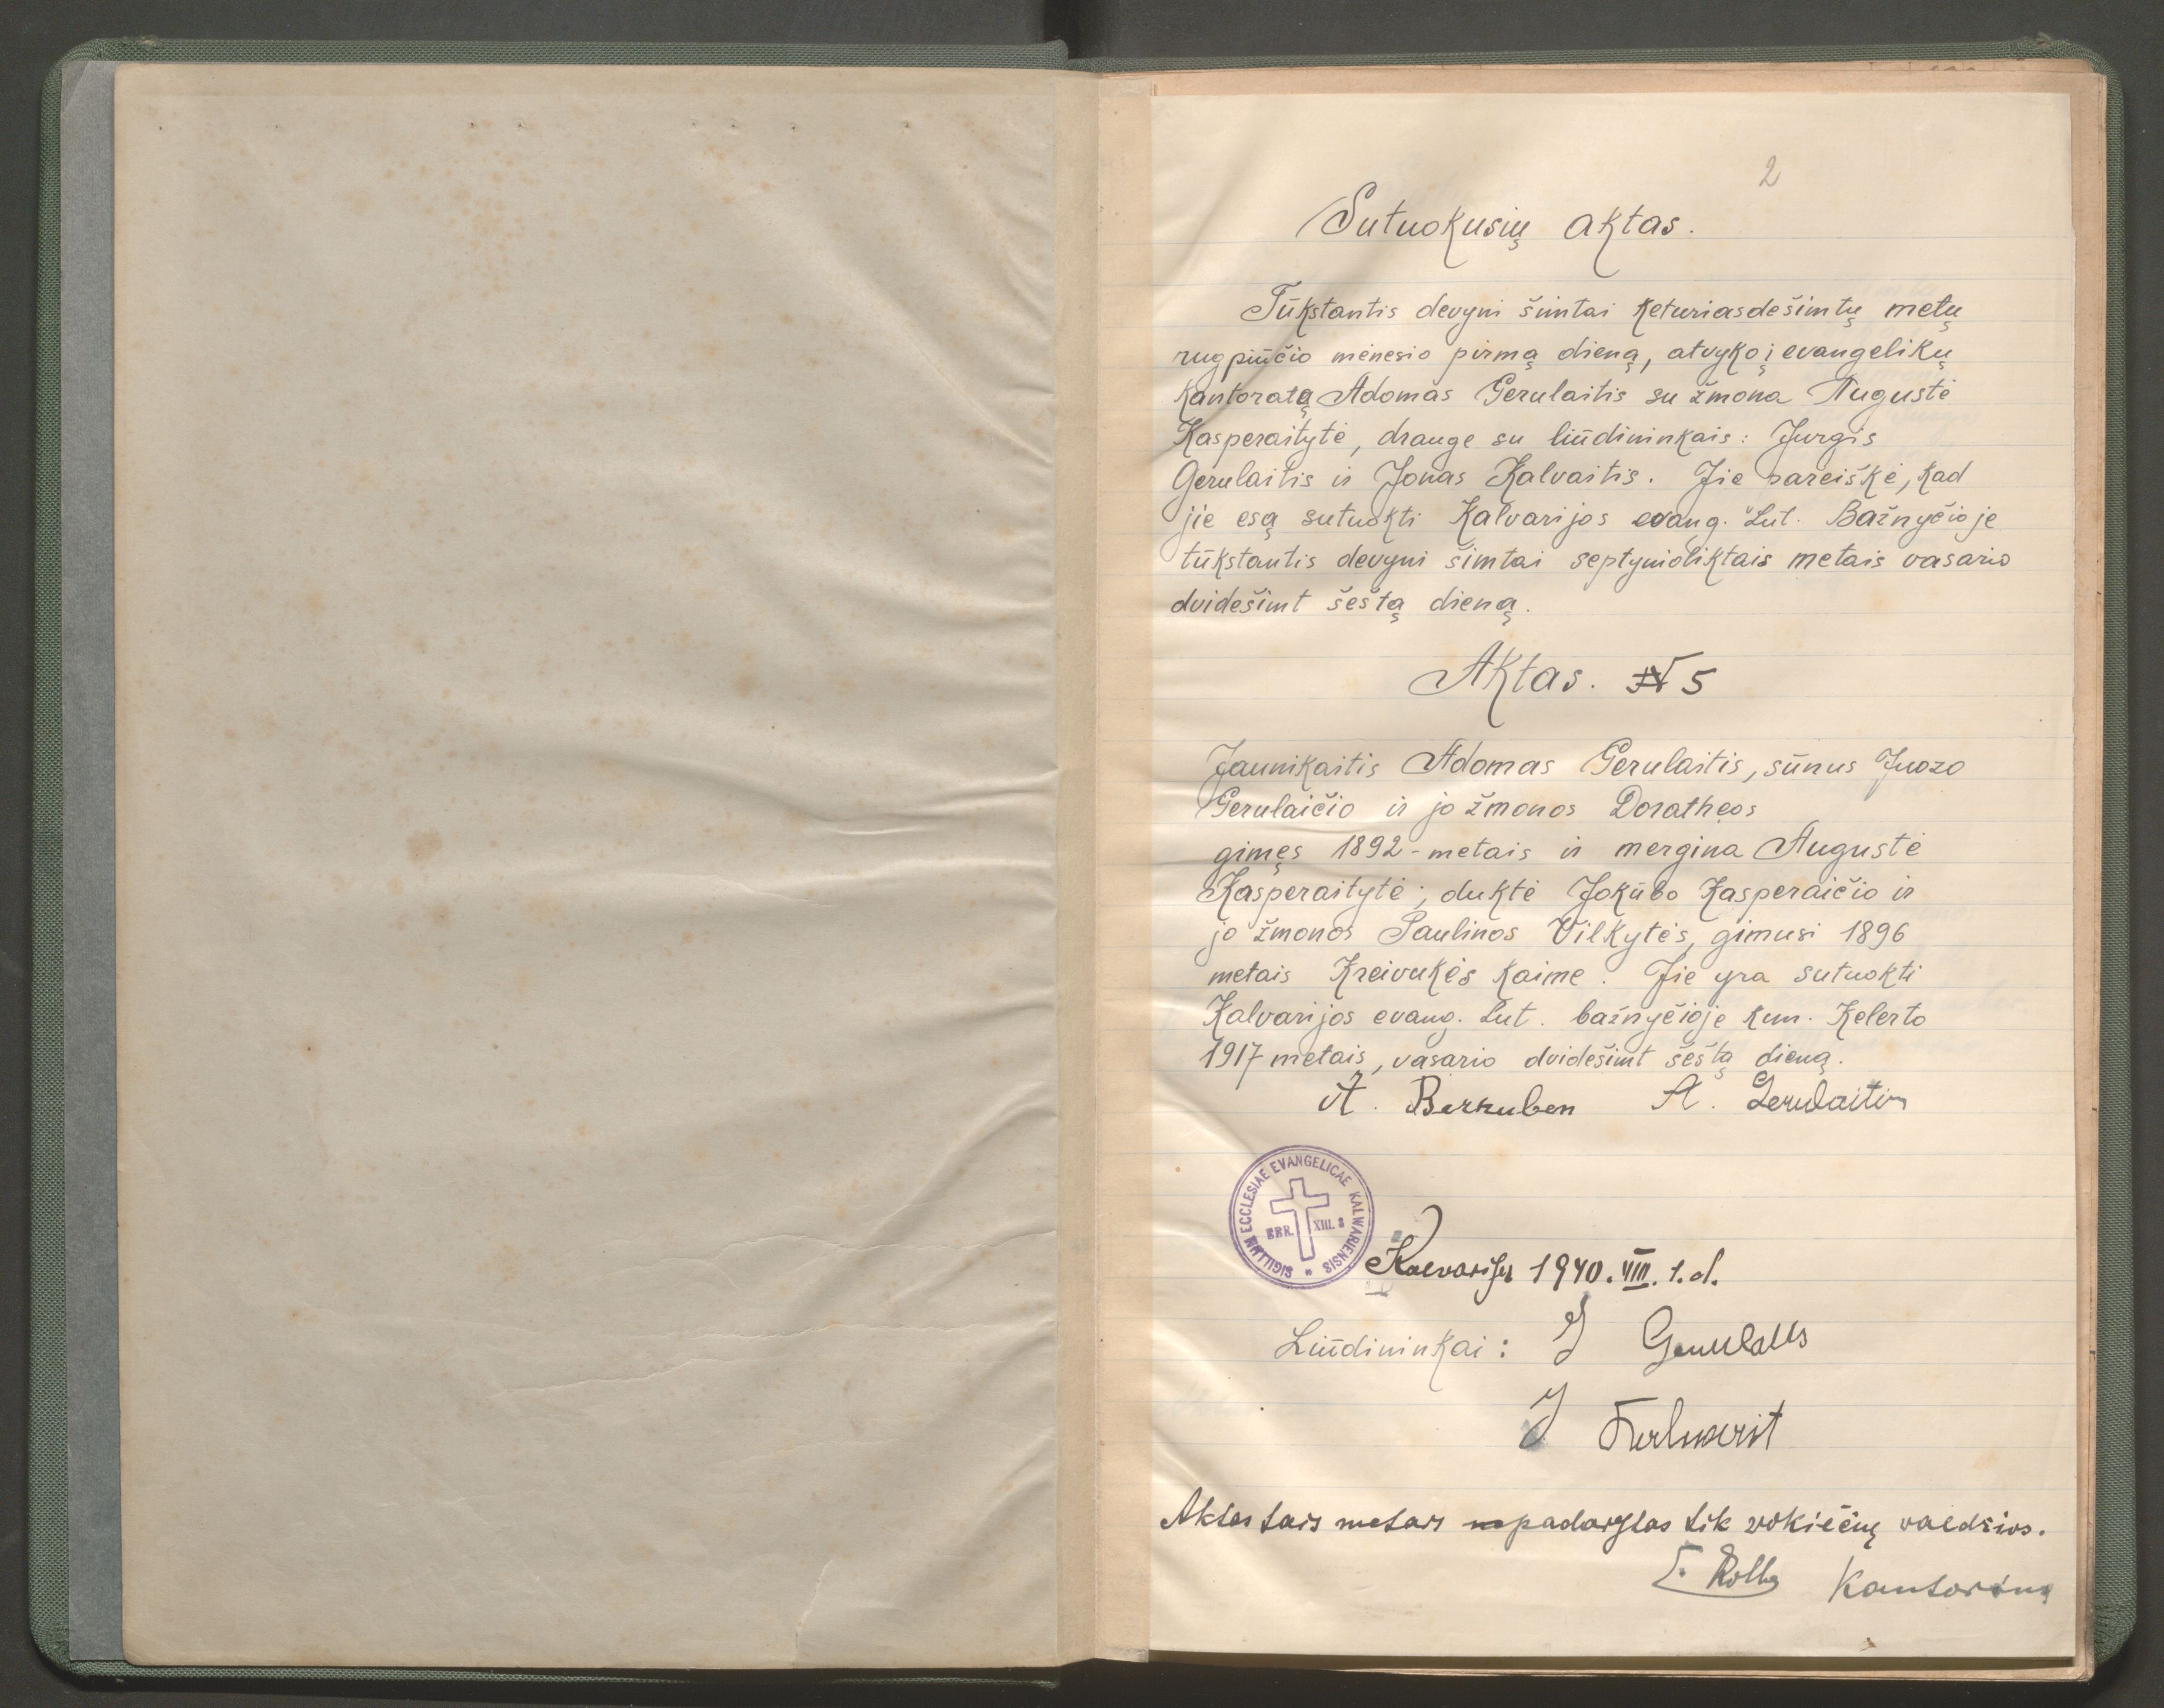 2
Sutuokusių aktas.
Tūkstantis devyni šimtai keturiasdešimtų metų
rugpiūčio mėnesio pirmą dieną, atvyko į evangelikų
kantoratą Adomas Gerulaitis su žmona Augustė
Kasperaitytė, drauge su liūdininkais: Jurgis
Gerulaitis ir Jonas Kalvaitis. Jie pareiškė, kad
jie esą sutuokti Kalvarijos evang. Lut. Bažnyčioje
tūkstantis devyni šimtai septynioliktais metais vasario
dvidešimt šeštą dieną.
Aktas. № 5
Jaunikaitis Adomas Gerulaitis, sūnus Juozo
Gerulaičio ir jo žmonos Doratheos
gimęs 1892-metais ir mergina Augustė
Kasperaitytė, duktė Jokūbo Kasperaičio ir
jo žmonos Paulinos Vilkytės, gimusi 1896
metais Kreivukės kaime. Jie yra sutuokti
Kalvarijos evang. Lut. bažnyčioje kun. Kelerto
1917 metais, vasario dvidešimt šeštą dieną.
A. A. Gerulaitis
SIGILLUM ECCLESIAE EVANGELICAE KALWARIENSIS *
EBR. XIII. 8
Kalvarija 1940. VIII. 1. d.
Liūdininkai: J
J
Aktas tais metais padarytas tik vokiečių valdžios.